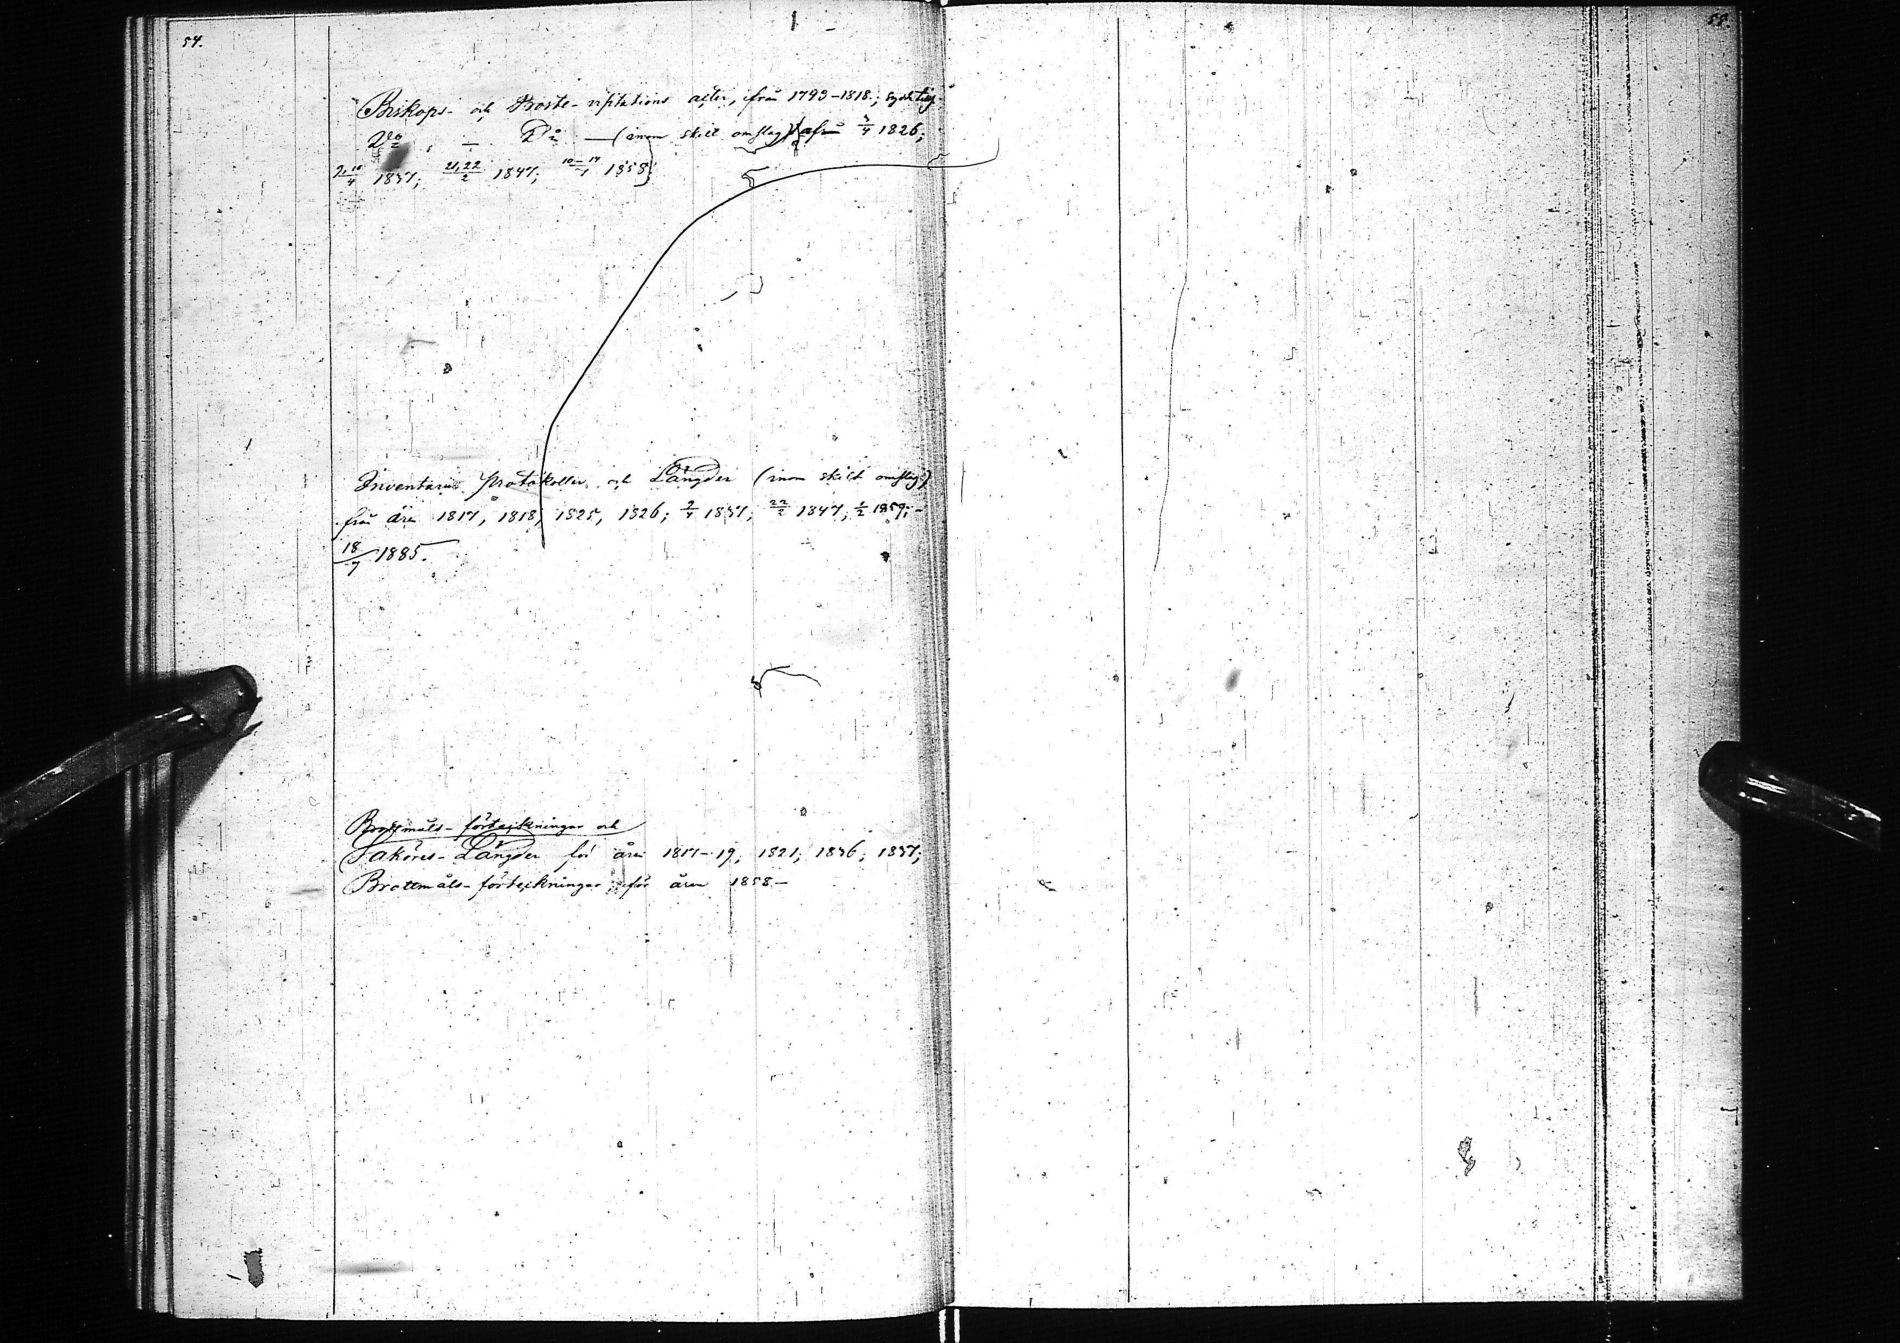 54.
Biskops- och Prosts-visitations acter, ifrån 1793-1818;
Do — Do — (inom skilt omslag) från 3/4 1826;
9,10/4 1837; 21,22/2 1847; 10-14/1 1858;
Inventarii Protokoller och Längder (inom skilt omslag)
från åren 1817, 1818, 1825, 1826; 9/4 1837; 22/2 1847; 1/2 1859; -
18/7 1885.
Brottmåls-förteckningar och
Saköres-Längder för åren 1817-19, 1821; 1836; 1837;
Brottmåls-förteckningar för åren 1858.-
55.